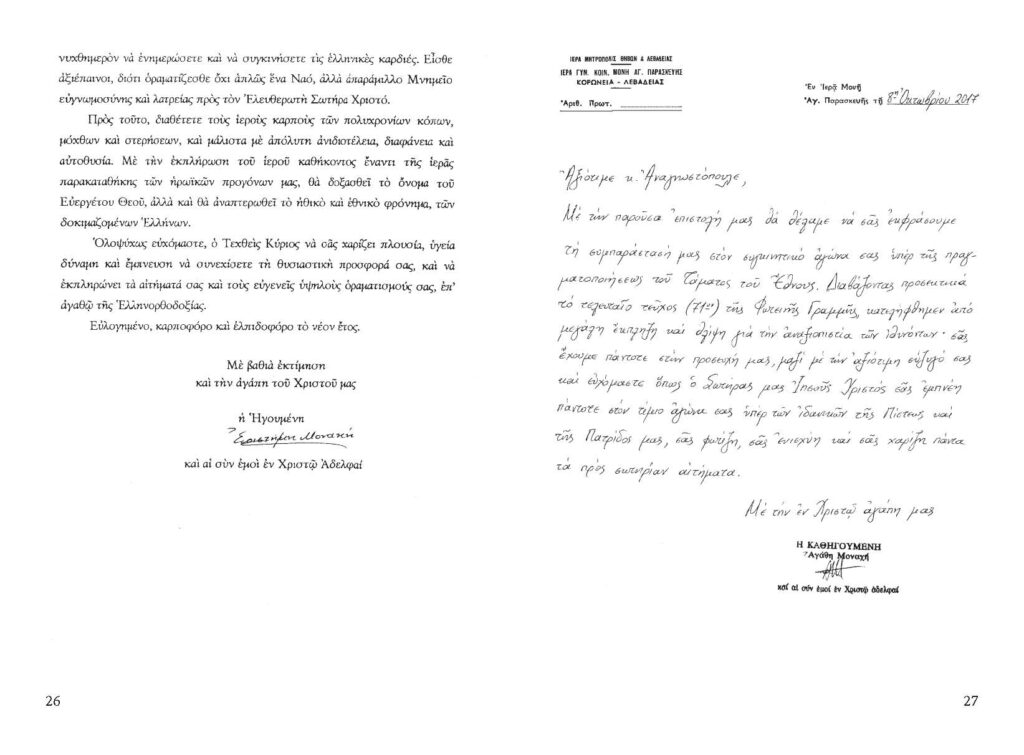 νυχθημερὸν νὰ ἐνημερώσετε καὶ νὰ συγκινήσετε τὶς ἑλληνικὲς καρδιές. Εἶσθε
ἀξιέπαινοι, διότι ὁραματίζεσθε ὄχι ἁπλῶς ἕνα Ναό, ἀλλὰ ἀπαράμιλλο Μνημεῖο
εὐγνωμοσύνης καὶ λατρείας πρὸς τὸν Ἐλευθερωτὴ Σωτήρα Χριστό.
Πρὸς τοῦτο, διαθέτετε τοὺς ἱεροὺς καρποὺς τῶν πολυχρονίων κόπων,
μόχθων καὶ στερήσεων, καὶ μάλιστα μὲ ἀπόλυτη ἀνιδιοτέλεια, διαφάνεια καὶ
αὐτοθυσία. Μὲ τὴν ἐκπλήρωση τοῦ ἱεροῦ καθήκοντος ἔναντι τῆς ἱερᾶς
παρακαταθήκης τῶν ἡρωϊκῶν προγόνων μας, θὰ δοξασθεῖ τὸ ὄνομα τοῦ
Εὐεργέτου Θεοῦ, ἀλλὰ καὶ θὰ ἀναπτερωθεῖ τὸ ἠθικὸ καὶ ἐθνικὸ φρόνημα, τῶν
δοκιμαζομένων Ἑλλήνων.
Ὁλοψύχως εὐχόμαστε, ὁ Τεχθεὶς Κύριος νὰ σᾶς χαρίζει πλουσία, ὑγεία
δύναμη καὶ ἔμπνευση νὰ συνεχίσετε τὴ θυσιαστικὴ προσφορά σας, καὶ νὰ
ἐκπληρώνει τὰ αἰτήματά σας καὶ τοὺς εὐγενεῖς ὑψηλοὺς ὁραματισμούς σας, ἐπ’
ἀγαθῷ τῆς Ἑλληνορθοδοξίας.
Εὐλογημένο, καρποφόρο καὶ ἐλπιδοφόρο τὸ νέον ἔτος.
Μὲ βαθιὰ ἐκτίμηση
καὶ τὴν ἀγάπη τοῦ Χριστοῦ μας
ἡ Ἡγουμένη
Μοναχή
καὶ αἱ σὺν ἐμοὶ ἐν Χριστῷ Ἀδελφαί
26
ΙΕΡΑ ΜΗΤΡΟΠΟΛΙΣ ΘΗΒΩΝ & ΛΕΒΑΔΕΙΑΣ
ΙΕΡΑ ΓΥΝ. ΚΟΙΝ. ΜΟΝΗ ΑΓ. ΠΑΡΑΣΚΕΥΗΣ
ΚΟΡΩΝΕΙΑ - ΛΕΒΑΔΕΙΑΣ
Ἀριθ. Πρωτ.
Ἐν Ἱερᾷ Μονῇ
Ἁγ. Παρασκευῆς τῇ 8ῃ Ὀκτωβρίου 2017
Ἀξιότιμε κ. Ἀναγνωστόπουλε,
Μὲ τὴν παροῦσα ἐπιστολή μας θὰ θέλαμε νὰ σᾶς ἐκφράσουμε
τὴ συμπαράστασή μας στὸν συγκινητικὸ ἀγώνα σας ὑπὲρ τῆς πραγ-
ματοποιήσεως τοῦ Τάματος τοῦ Ἔθνους. Διαβάζοντας προσεκτικὰ
τὸ τελευταῖο τεῦχος (71ον) τῆς Φωτεινῆς Γραμμῆς, κατελήφθημεν ἀπὸ
μεγάλη ἔκπληξη καὶ θλίψη γιὰ τὴν ἀναξιοπιστία τῶν ἰθυνόντων· σᾶς
ἔχουμε πάντοτε στὴν προσευχή μας, μαζὶ μὲ τὴν ἀξιότιμη σύζυγό σας
καὶ εὐχόμαστε ὅπως ὁ Σωτήρας μας Ἰησοῦς Χριστὸς σᾶς ἐμπνέῃ
πάντοτε στὸν τίμιο ἀγώνα σας ὑπὲρ τῶν ἰδανικῶν τῆς Πίστεως καὶ
τῆς Πατρίδος μας, σᾶς φωτίζῃ, σᾶς ἐνισχύῃ καὶ σᾶς χαρίζῃ πάντα
τὰ πρὸς σωτηρίαν αἰτήματα.
Μὲ τὴν ἐν Χριστῷ ἀγάπη μας
Η ΚΑΘΗΓΟΥΜΕΝΗ
Ἀγάθη Μοναχή
καί αἱ σύν ἐμοί ἐν Χριστῷ ἀδελφαί
27